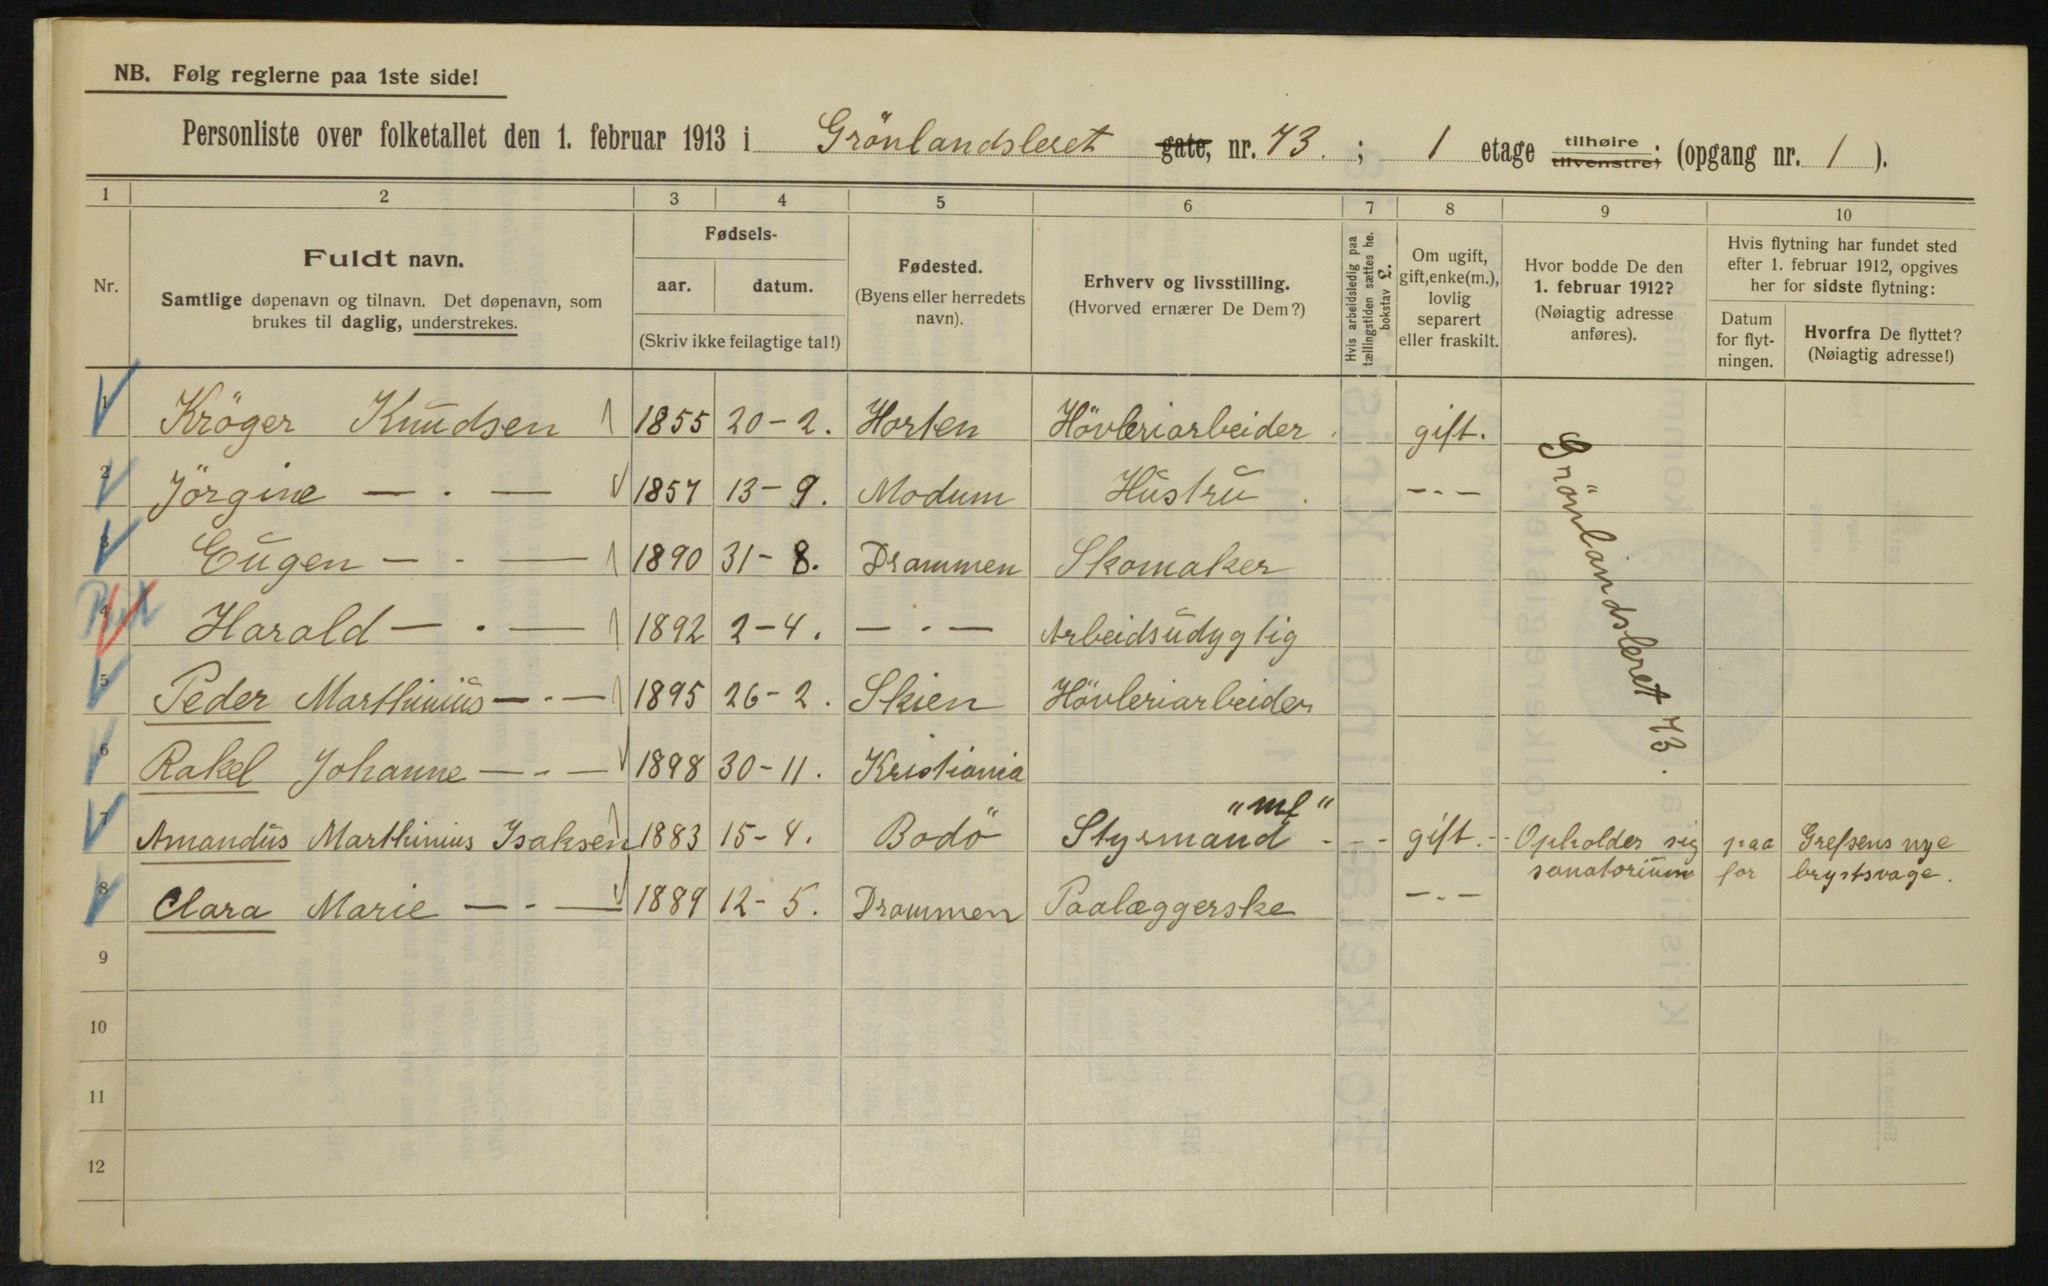 NB. Følg reglerne paa 1ste side!
Personliste over folketallet den 1. februar 1913 i Grönlandsleret gate, nr. 73. ; 1 etage tilhøire tilvenstre; (opgang nr. 1 ).
1 2 3 4 5 6 7 8 9 10
Nr.
Fuldt navn.
Samtlige døpenavn og tilnavn. Det døpenavn, som
brukes til daglig, understrekes.
Fødsels-
aar. datum.
(Skriv ikke feilagtige tal!)
Fødested.
(Byens eller herredets
navn).
Erhverv og livsstilling.
(Hvorved ernærer De Dem?)
Hvis arbeidsledig paa
tællingstiden sættes he.
bokstav L.
Om ugift,
gift, enke(m.),
lovlig
separert
eller fraskilt.
Hvor bodde De den
1. februar 1912?
(Nøiagtig adresse
anføres).
Hvis flytning har fundet sted
efter 1. februar 1912, opgives
her for sidste flytning:
Datum
for flyt-
ningen.
Hvorfra De flyttet?
(Nøiagtig adresse!)
1 Kröger Knudsen 1855 20-2. Horten Hövleriarbeider gift.
2 Jörgine — · — 1857 13-9. Modum Hustru — · —
3 Eugen — · — 1890 31-8. Drammen Skomaker
4 Harald — · — 1892 2-4. — · — Arbeidsudygtig
5 Peder Marthinius — · — 1895 26-2. Skien Hövleriarbeider
6 Rakel Johanne — · — 1898 30-11. Kristiania
Grönlandsleret 73.
7 Amandus Marthinius Isaksen 1883 15-4. Bodö Styrmand "mf" - - - gift. - - Opholder sig paa Grefsens nye
sanatorium for brystsvage.
8 Clara Marie — · — 1889 12-5. Drammen Paalæggerske — · —
9
10
11
12